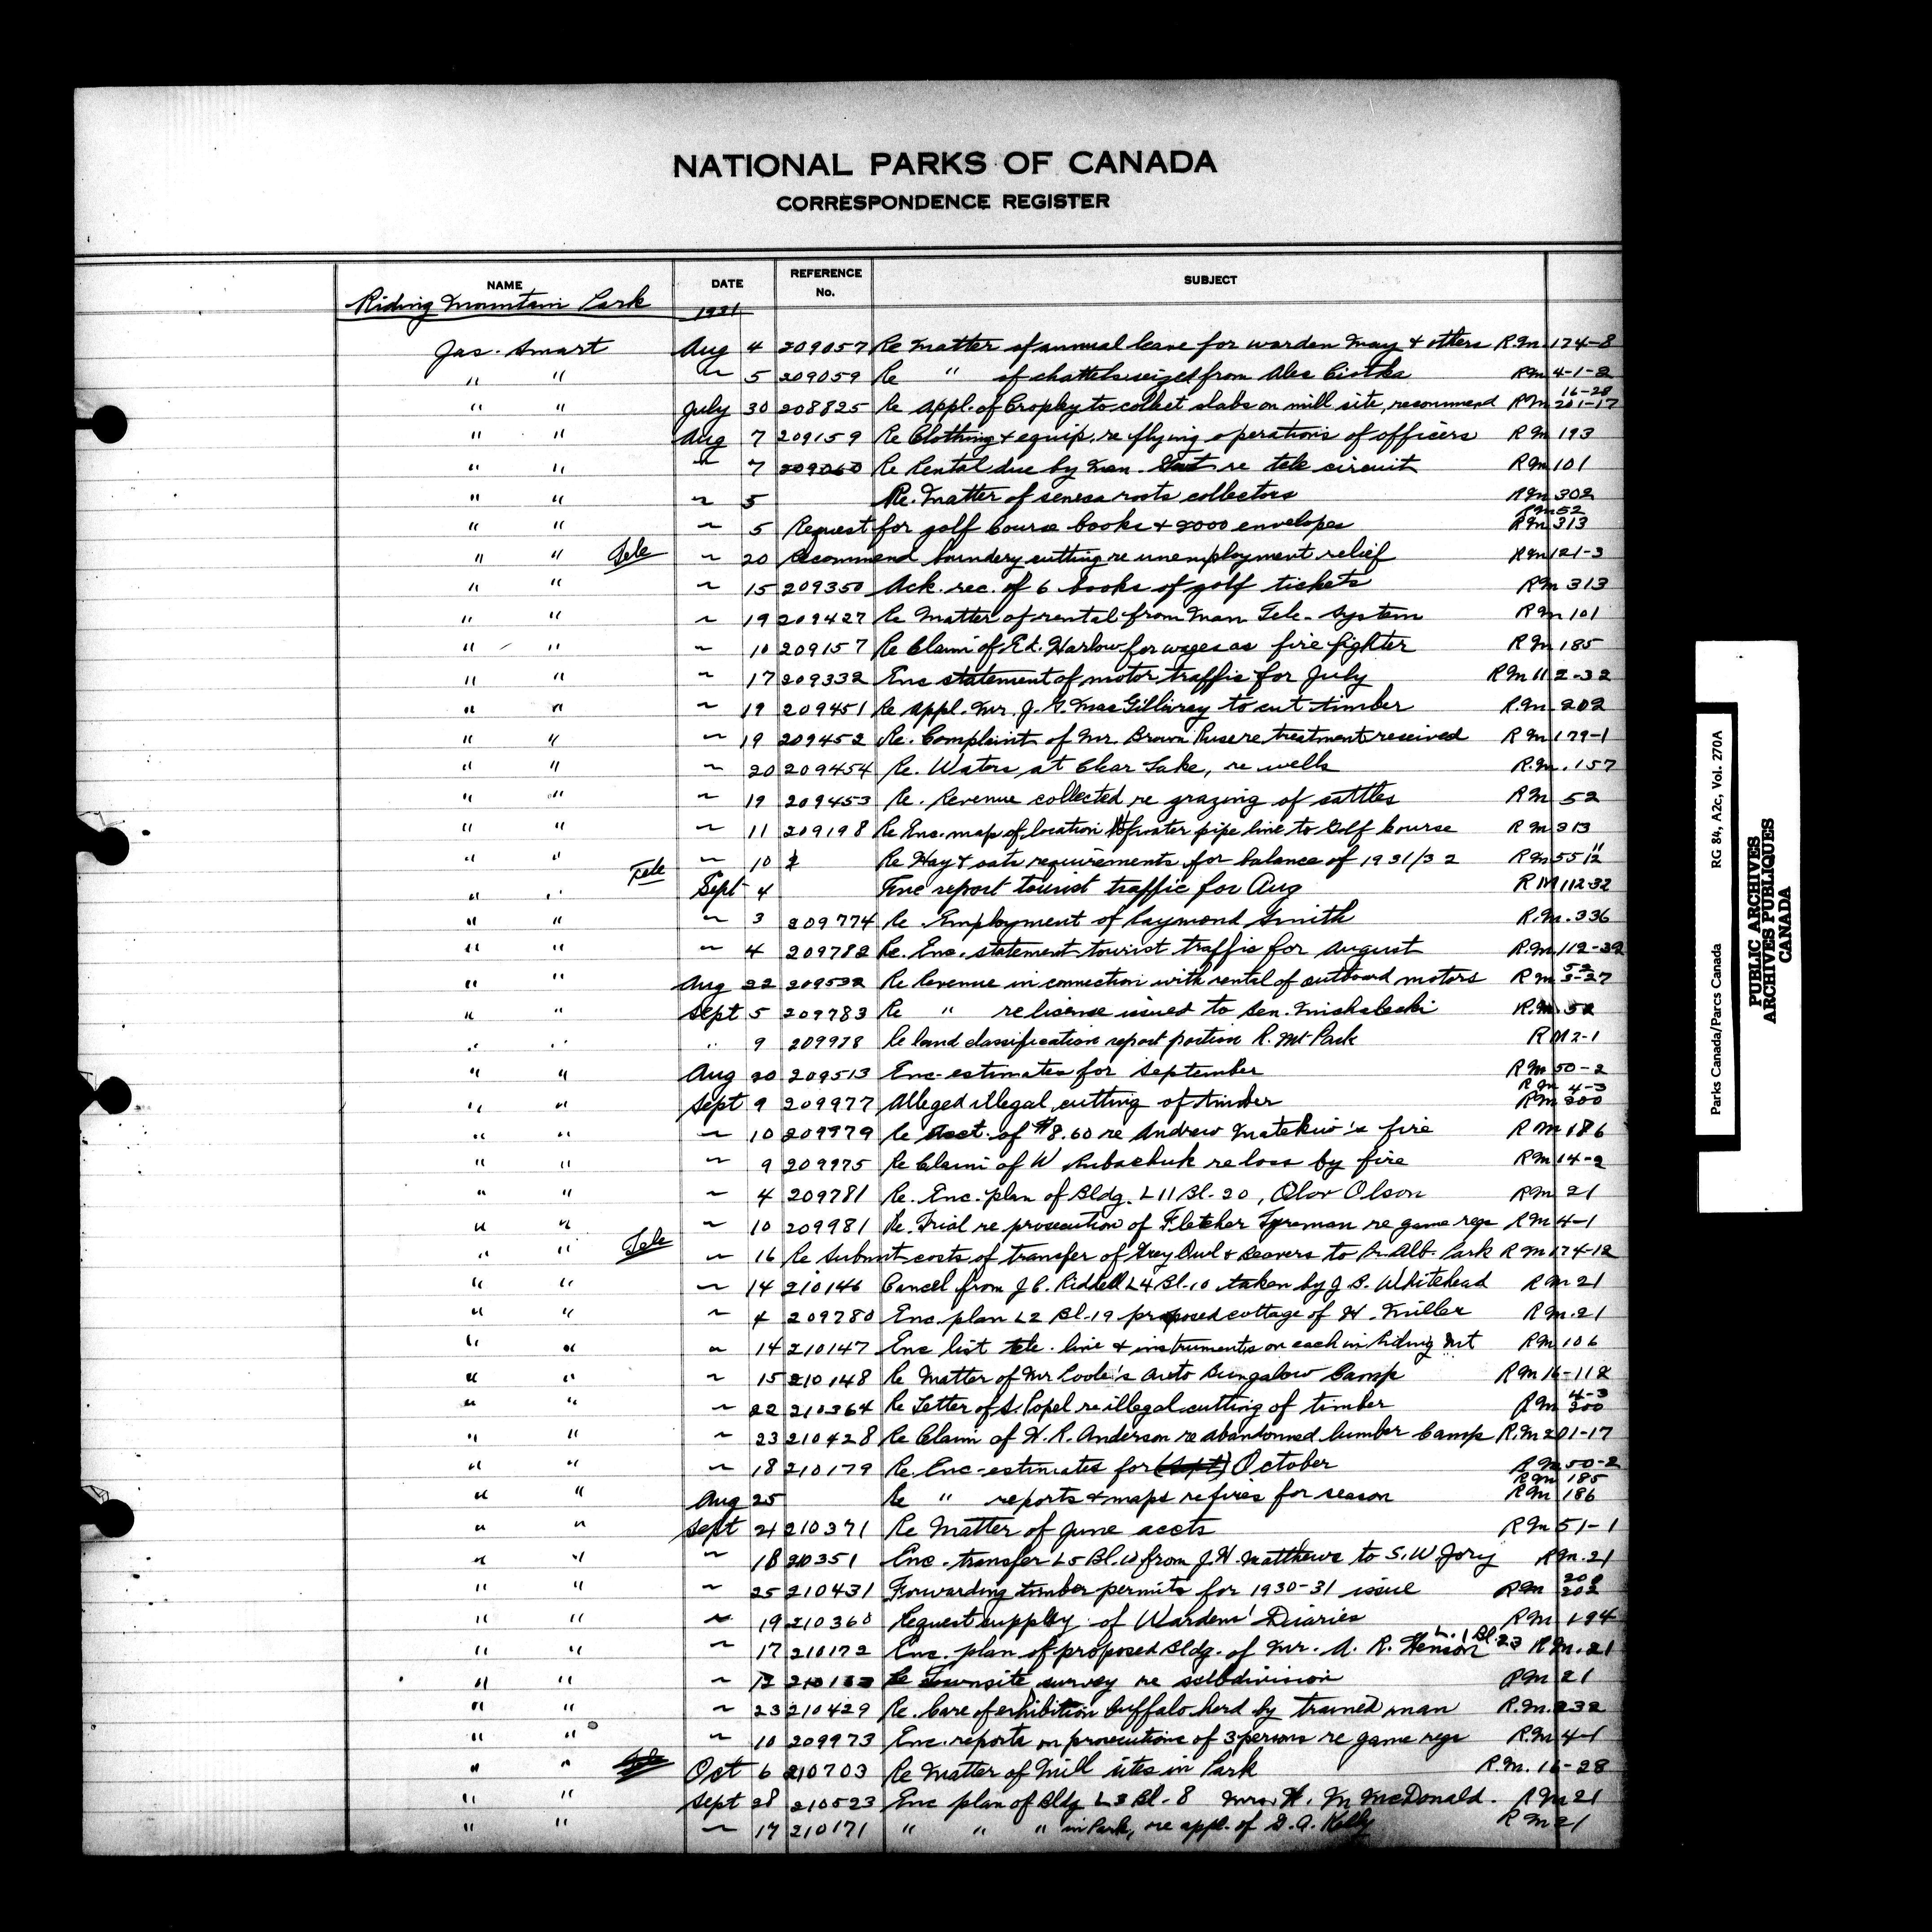 NATIONAL PARKS OF CANADA
CORRESPONDENCE REGISTER
NAME DATE REFERENCE No. SUBJECT
Riding Mountain Park 1931
Jas. Smart Aug 4 209057 Re Matter of annual leave for warden May & others R.M. 174-8
" " ~ 5 209059 Re " of chattels seized from Alex RM 4-1-2
" " July 30 208825 Re appl. of Cropley to collect slabs on mill site, recommend RM 16-28 201-17
" " Aug 7 209159 Re Clothing & equip. re flying operations of officers RM 193
" " ~ 7 209060 Re Rental due by Man. Govt re tele circuit RM 101
" " ~ 5 Re. Matter of seneca roots collectors RM 302
" " ~ 5 Request for golf course books & 2000 envelopes RM 52 RM 313
" " Tele ~ 20 Recommend boundery cutting re unemployment relief RM 121-3
" " ~ 15 209350 Ack. rec. of 6 books of golf tickets RM 313
" " ~ 19 209427 Re Matter of rental from Man Tele. System RM 101
" " ~ 10 209157 Re Claim of Ed. Harlow for wages as fire fighter RM 185
" " ~ 17 209332 Enc statement of motor traffic for July RM 112-32
" " ~ 19 209451 Re appl. Mr. J. G. MacGillivray to cut timber R.M. 202
" " ~ 19 209452 Re. Complaint of Mr. Brown re treatment received RM 179-1
" " ~ 20 209454 Re. Waters at Clear Lake, re wells R.M. 157
" " ~ 19 209453 Re. Revenue collected re grazing of cattles RM 52
" " ~ 11 209198 Re Enc. map of location of water pipe line to Golf Course RM 313
" " ~ 10 Re Hay & oats requirements for balance of 1931/32 RM 55
" " Tele Sept 4 Enc report tourist traffic for Aug RM 112-32
" " ~ 3 209774 Re. Employment of Raymond Smith R.M. 336
" " ~ 4 209782 Re. Enc. statement tourist traffic for August R.M. 112-32
" " Aug 22 209532 Re Revenue in connection with rental of outboard motors RM 52 3-27
" " Sept 5 209783 Re " re license issued to Sen. Michaleski R.M. 52
" " " 9 209978 Re land classification report portion R. Mt Park RM 2-1
" " Aug 20 209513 Enc-estimates for September RM 50-2
" " Sept 9 209977 Alleged illegal cutting of timber RM 4-3 RM 200
" " ~ 10 209979 Re Acct. of $8.60 re Andrew Matekiw's fire RM 186
" " ~ 9 209975 Re Claim of W Rubachuk re loss by fire RM 14-2
" " ~ 4 209781 Re. Enc. plan of Bldg. L11 Bl. 20, Olov Olson RM 21
" " ~ 10 209981 Re. Trial re prosecution of Fletcher Tyreman re game regs RM 4-1
" " Tele ~ 16 Re Submit costs of transfer of Grey Owl & Beavers to Pr. Alb. Park RM 174-12
" " ~ 14 210146 Cancel from J. C. Riddell L4 Bl. 10 taken by J. B. Whitehead RM 21
" " ~ 4 209780 Enc. plan L2 Bl. 19 proposed cottage of H. Miller RM. 21
" " ~ 14 210147 Enc list tele. line & instruments on each in Riding Mt RM 106
" " ~ 15 210148 Re Matter of Mr Poole's Auto Bungalow Camp RM 16-112
" " ~ 22 210364 Re Letter of S. Popel re illegal cutting of timber RM 4-3 200
" " ~ 23 210428 Re Claim of H. R. Anderson re abandonned lumber Camp R.M. 201-17
" " ~ 18 210179 Re. Enc-estimates for (Sept) October RM 50-2
" " Aug 25 Re " reports & maps re fires for season RM 185 RM 186
" " Sept 21 210371 Re Matter of June accts RM 51-1
" " ~ 18 210351 Enc. transfer L5 Bl. 10 from J. H. Matthews to S. W. Jory RM. 21
" " ~ 25 210431 Forwarding timber permits for 1930-31 issue RM 202
" " ~ 19 210360 Request suppley of Wardens' Diaries RM 194
" " ~ 17 210172 Enc. plan of proposed Bldg. of Mr. A. R. Henson L. 1 Bl. 23 RM. 21
" " ~ 12 Re Townsite survey re subdivision RM 21
" " ~ 23 210429 Re. Care of exhibition buffalo herd by trained man R.M. 232
" " ~ 10 209973 Enc. reports on prosecutions of 3 persons re game regs R.M. 4-1
" " Oct 6 210703 Re Matter of Mill sites in Park R.M. 16-28
" " Sept 28 210523 Enc plan of Bldg L3 Bl-8 Mrs. H. M McDonald. RM 21
" " ~ 17 210171 " " " in Park, re appl. of G. A. Kelly RM 21
Parks Canada/Parcs Canada RG 84, A2c, Vol. 270A
PUBLIC ARCHIVES
ARCHIVES PUBLIQUES
CANADA